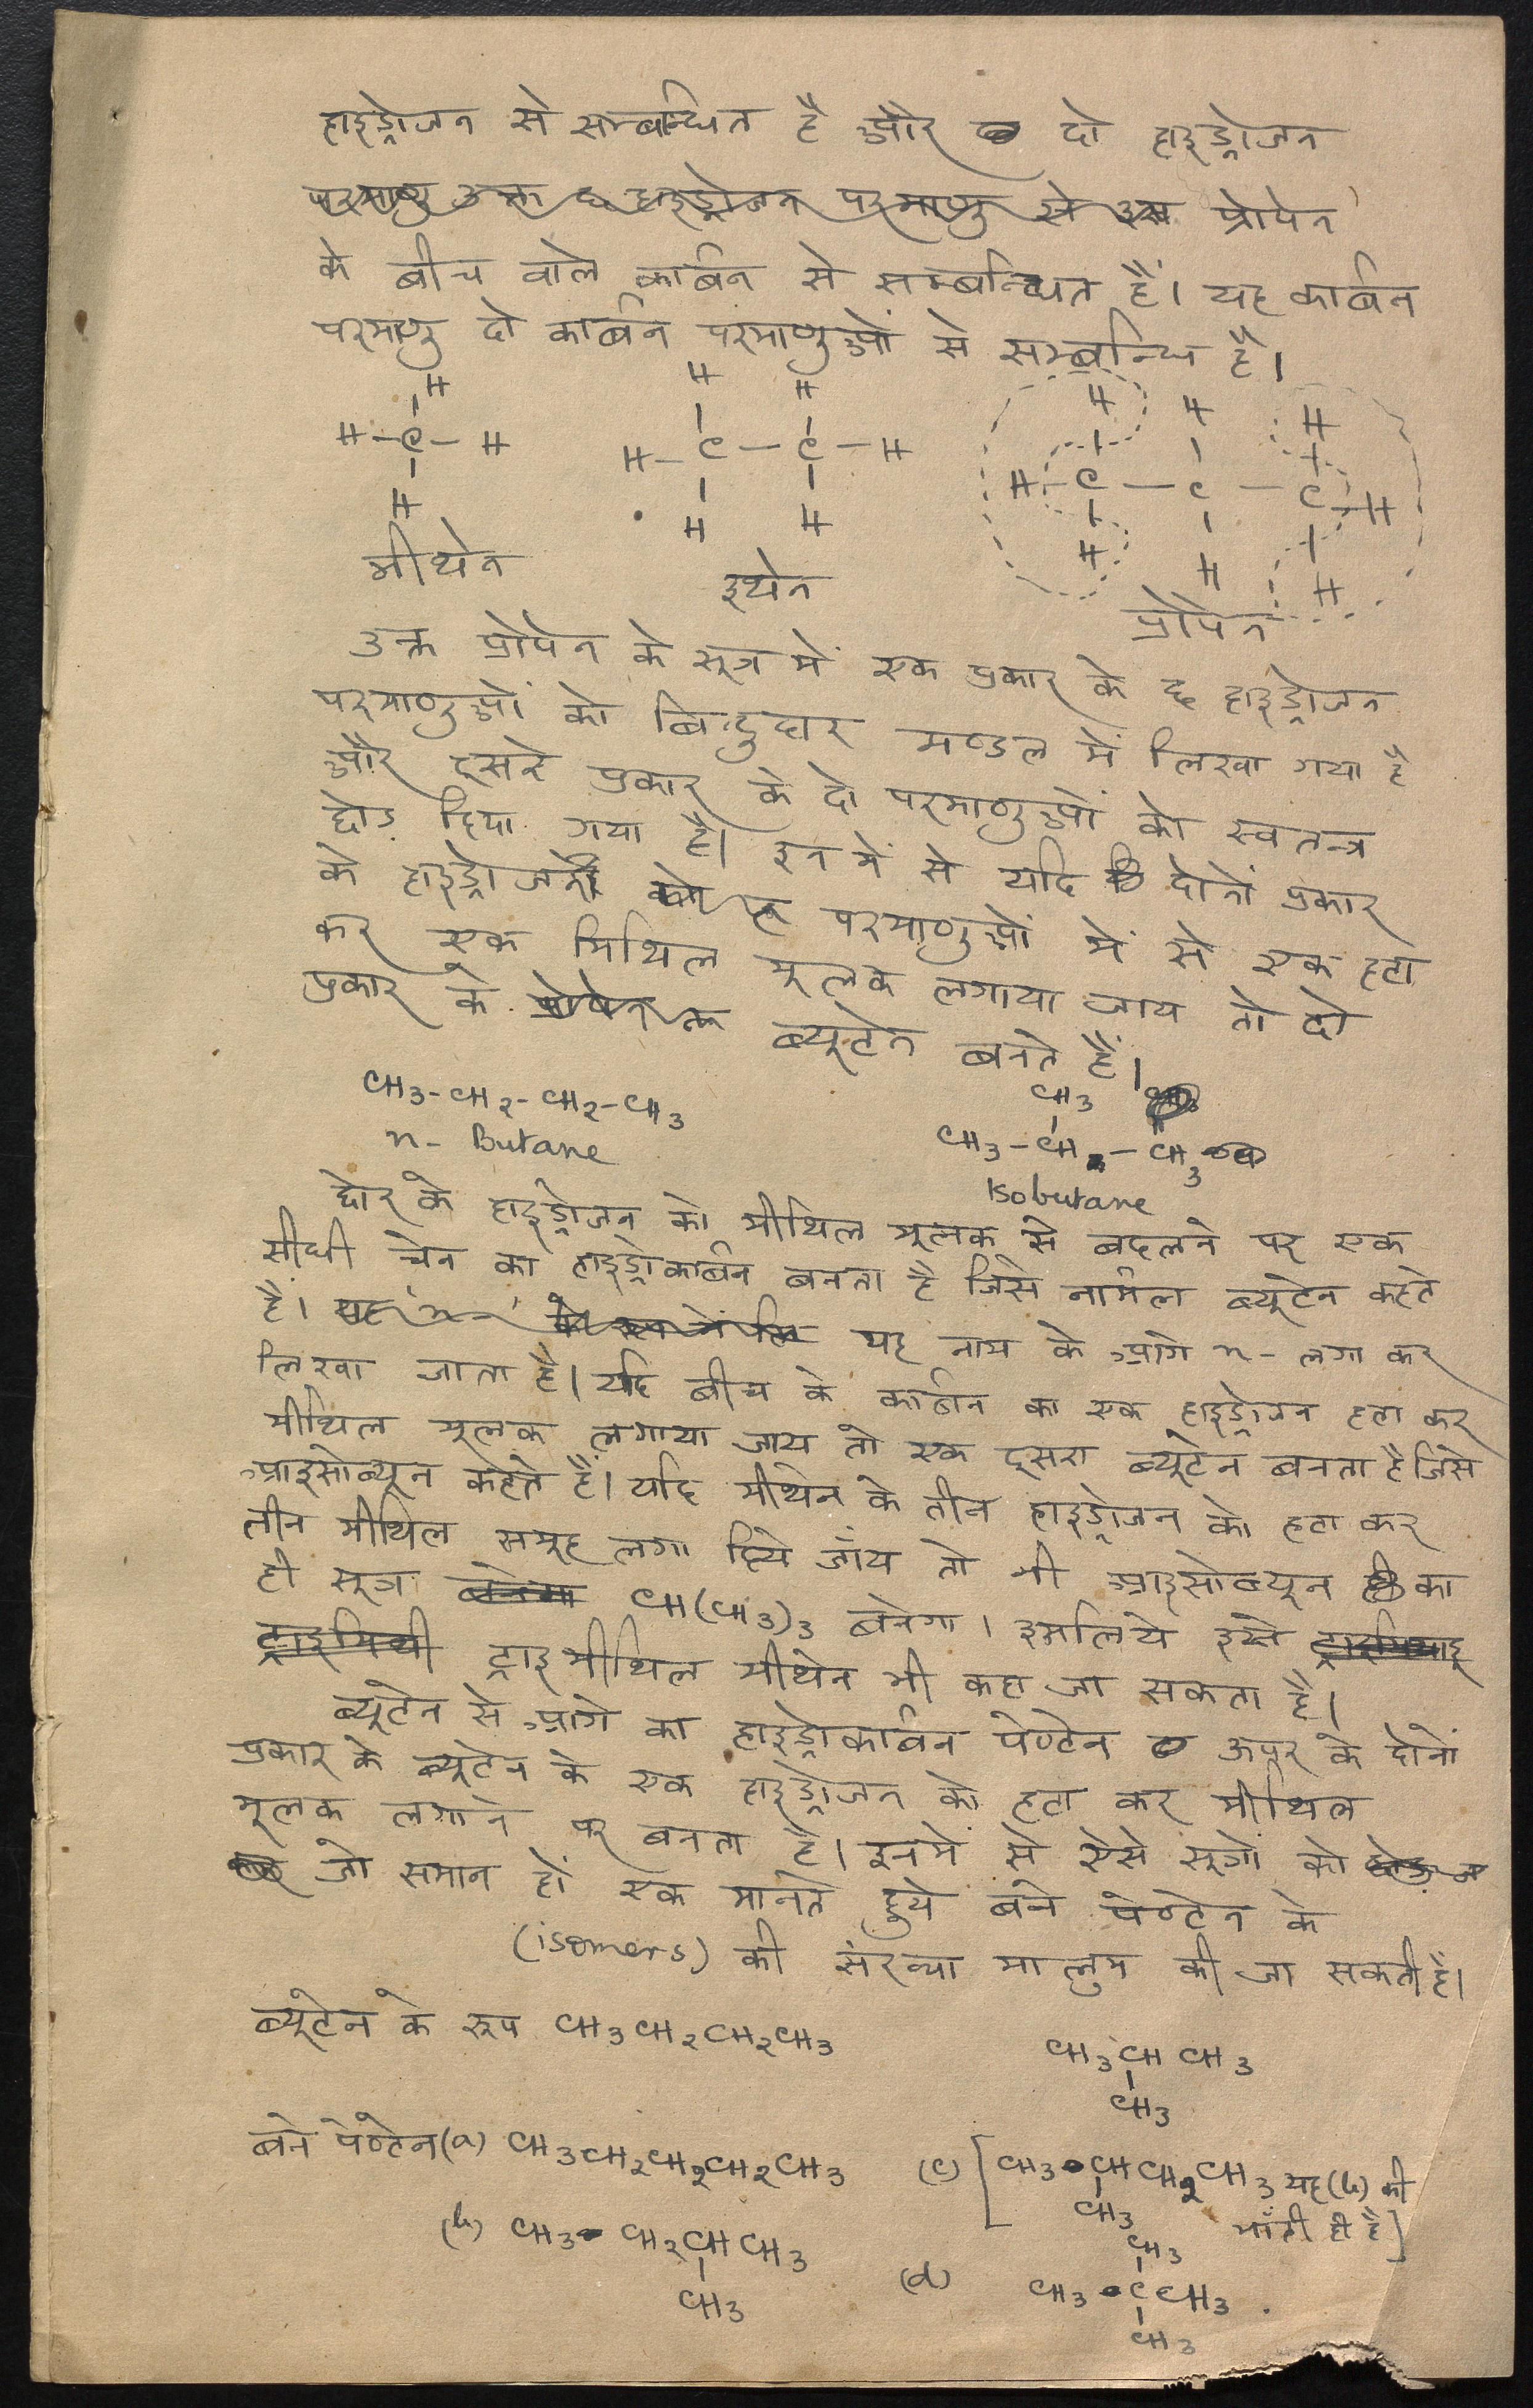 हाइड्रोजन से सम्बन्धित है और दो हाइड्रोजन
परमाणु उक्त ६ हाइड्रोजन परमाणु से प्रोपेन
के बीच वाले कार्बन से सम्बन्धित हैं। यह कार्बन
परमाणु दो कार्बन परमाणुओं से सम्बन्धि है।
H H H H H H
H-C-H H-C-C-H H-C-C-C-H
H H H H H H
मीथेन इथेन प्रोपेन
उक्त प्रोपेन के सूत्र में एक प्रकार के ६ हाइड्रोजन
परमाणुओं को बिन्दुदार मण्डल में लिखा गया है
और दूसरे प्रकार के दो परमाणुओं को स्वतन्त्र
छोड़ दिया गया है। इन में से यदि दोनों प्रकार
के हाइड्रोजन परमाणुओं में से एक हटा
कर एक मिथिल मूलक लगाया जाय तो दो
प्रकार के ब्यूटेन बनते हैं।
CH3-CH2-CH2-CH3 CH3
n- Butane CH3-CH-CH3
Isobutane
छोर के हाइड्रोजन को मीथिल मूलक से बदलने पर एक
सीधी चेन का हाइड्रोकार्बन बनता है जिसे नार्मल ब्यूटेन कहते
है। यह 'n-' यह नाम के आगे n- लगा कर
लिखा जाता है। यदि बीच के कार्बन का एक हाइड्रोजन हटा कर
मीथिल मूलक लगाया जाय तो एक दूसरा ब्यूटेन बनता है जिसे
आइसोब्यून कहते हैं। यदि मीथेन के तीन हाइड्रोजन को हटा कर
तीन मीथिल समूह लगा दिये जाँय तो भी आइसोब्यून का
ही सूत्र बनेगा CH(CH3)3 बनेगा। इसलिये इसे
ट्राइमिथी ट्राइमीथिल मीथेन भी कहा जा सकता है।
ब्यूटेन से आगे का हाइड्रोकार्बन पेण्टेन ऊपर के दोनों
प्रकार के ब्यूटेन के एक हाइड्रोजन को हटा कर मीथिल
मूलक लगाने पर बनता है। इनमें से ऐसे सूत्रों को
जो समान हों एक मानते हुये बने पेण्टेन के
(isomers) की संख्या मालुम की जा सकती है।
ब्यूटेन के रूप CH3CH2CH2CH3 CH3CH CH3
CH3
बने पेण्टेन (a) CH3CH2CH2CH2CH3 (c) [CH3 CH CH2CH3 यह (b) की
CH3 भाँती ही है]
(b) CH3 CH2CH CH3
CH3
CH3
(d) CH3 C CH3
CH3